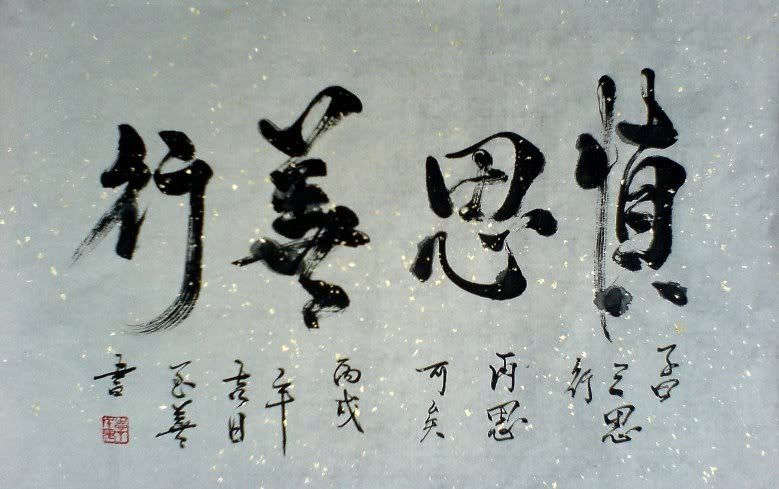 慎思善行
子曰
三思
行
再思
可矣
丙戌
年
吉日
善
書